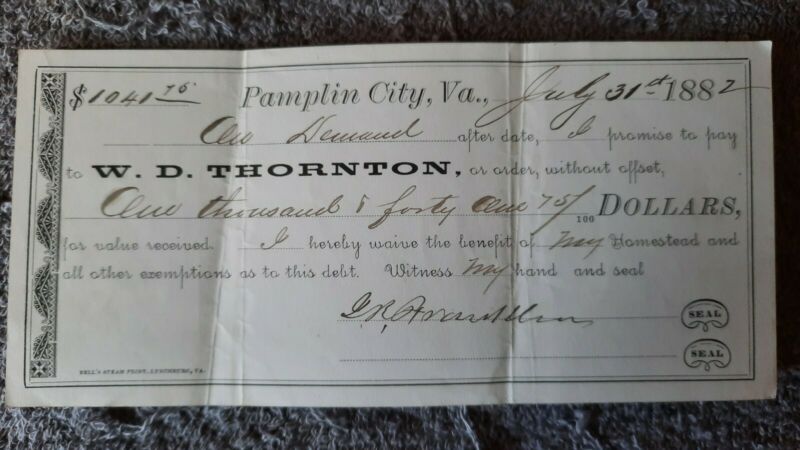 $1041 75 Pamplin City, Va., July 31st 1882
On Demand after date, I promise to pay
to W. D. THORNTON, or order, without offset,
One thousand & forty One 75/100 DOLLARS,
for value received. I hereby waive the benefit of My Homestead and
all other exemptions as to this debt. Witness My hand and seal
Franklin SEAL
SEAL
BELL'S STEAM PRINT, LYNCHBURG, VA.